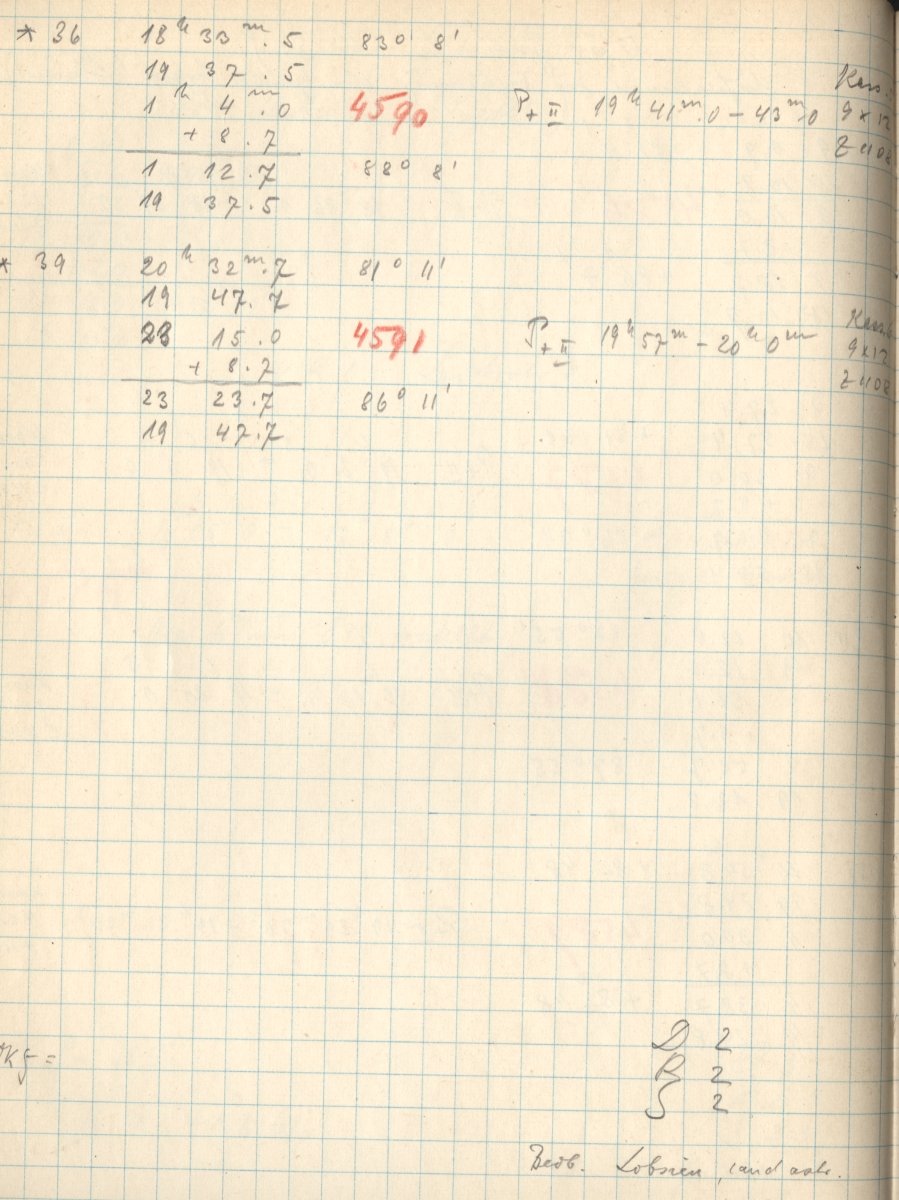 * 36 18h 33m.5 83° 8'
19 37.5 Kass.
1h 4m.0 4590 P+II 19h 41m.0 – 43m.0 9×12
+ 8.7 Z4108
1 12.7 88° 8'
19 37.5
* 39 20h 32m.7 81° 11'
19 47.7
23 15.0 4591 P+II 19h 57m – 20h 0m 9×12
+ 8.7 Z4108
23 23.7 86° 11'
19 47.7
D 2
R 2
S 2
Beob. Lobsien, cand astr.